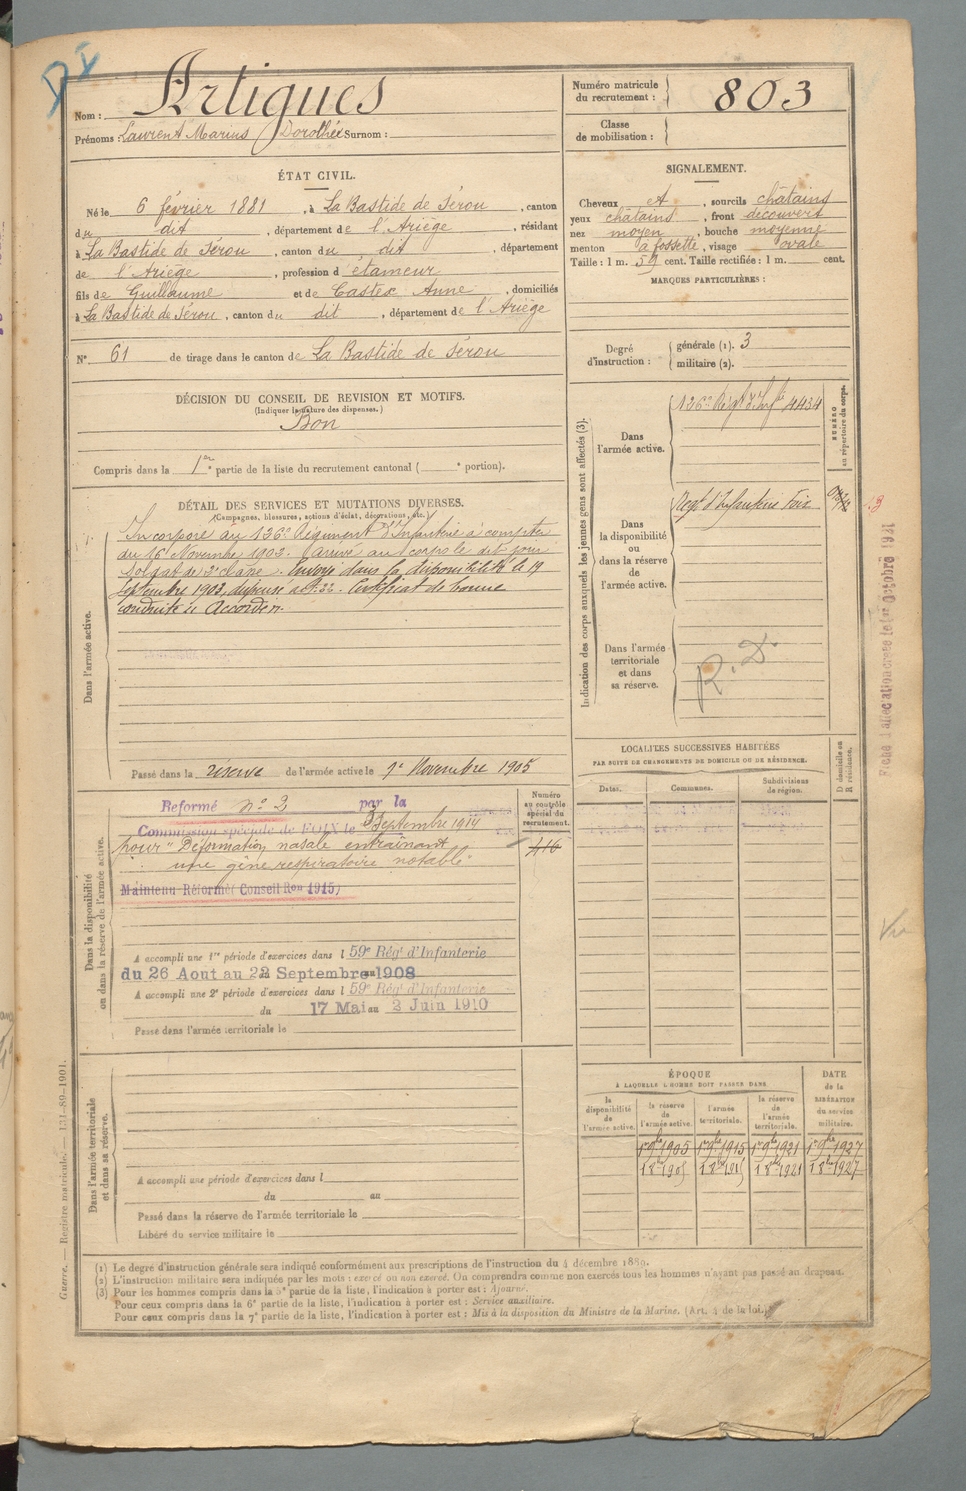 Nom : Artigues
Prénoms : Laurent Marius Dorothée Surnom :
Numéro matricule du recrutement : 803
Classe de mobilisation :
ÉTAT CIVIL.
Né le 6 février 1881, à La Bastide de Sérou, canton
du dit, département de l'Ariège, résidant
à La Bastide de Sérou, canton du dit, département
de l'Ariège, profession d'étameur
fils de Guillaume et de Castex Anne, domiciliés
à La Bastide de Sérou, canton du dit, département de l'Ariège
N° 61 de tirage dans le canton de La Bastide de Sérou
SIGNALEMENT.
Cheveux et, sourcils châtains
yeux châtains, front découvert
nez moyen, bouche moyenne
menton à fossette, visage ovale
Taille : 1 m. 59 cent. Taille rectifiée : 1 m. cent.
MARQUES PARTICULIÈRES :
Degré d'instruction : générale (1). 3
militaire (2).
DÉCISION DU CONSEIL DE REVISION ET MOTIFS.
(Indiquer la nature des dispenses.)
Bon
Compris dans la 1re partie de la liste du recrutement cantonal ( e portion).
DÉTAIL DES SERVICES ET MUTATIONS DIVERSES.
(Campagnes, blessures, actions d'éclat, décorations, etc.)
Dans l'armée active.
Incorporé au 126e Régiment d'Infanterie à compter
du 16 Novembre 1902. Arrivé au corps le dit jour
Soldat de 2e classe. Envoyé dans la disponibilité le 19
Septembre 1903, dispense art. 22. Certificat de bonne
conduite Accordé.
Passé dans la réserve de l'armée active le 1er Novembre 1905
Indication des corps auxquels les jeunes gens sont affectés (3).
NUMÉRO au répertoire du corps.
Dans l'armée active.
126e Régt d'Infie 4434
Dans la disponibilité ou dans la réserve de l'armée active.
Régt d'Infanterie Foix
Dans l'armée territoriale et dans sa réserve.
R. D.
Fiche d'allocation créée le 1er Octobre 1921
Dans la disponibilité ou dans la réserve de l'armée active.
Numéro au contrôle spécial du recrutement.
416
Reformé n° 2 par la
Commission spéciale de FOIX le 3 Septembre 1914
pour "Déformation nasale entraînant
une gêne respiratoire notable"
Maintenu Réformé( Conseil Ron 1915)
A accompli une 1re période d'exercices dans l 59e Régt d'Infanterie
du 26 Aout au 22 Septembre 1908
A accompli une 2e période d'exercices dans l 59e Régt d'Infanterie
du 17 Mai au 2 Juin 1910
Passé dans l'armée territoriale le
LOCALITÉES SUCCESSIVES HABITÉES
PAR SUITE DE CHANGEMENTS DE DOMICILE OU DE RÉSIDENCE.
Dates.
Communes.
Subdivisions de région.
D domicile ou R résidence.
Vu
Dans l'armée territoriale et dans sa réserve.
A accompli une période d'exercices dans l
du au
Passé dans la réserve de l'armée territoriale le
Libéré du service militaire le
ÉPOQUE
À LAQUELLE L'HOMME DOIT PASSER DANS
la disponibilité de l'armée active.
la réserve de l'armée active.
l'armée territoriale.
la réserve de l'armée territoriale.
DATE de la LIBÉRATION du service militaire.
1er 9bre 1905 1er 9bre 1915 1er 9bre 1921 1er 9bre 1927
1 8bre 1905 1 8bre 1915 1 8bre 1921 1 8bre 1927
(1) Le degré d'instruction générale sera indiqué conformément aux prescriptions de l'instruction du 4 décembre 1889.
(2) L'instruction militaire sera indiquée par les mots : exercé ou non exercé. On comprendra comme non exercés tous les hommes n'ayant pas passé au drapeau.
(3) Pour les hommes compris dans la 5e partie de la liste, l'indication à porter est : Ajourné.
Pour ceux compris dans la 6e partie de la liste, l'indication à porter est : Service auxiliaire.
Pour ceux compris dans la 7e partie de la liste, l'indication à porter est : Mis à la disposition du Ministre de la Marine. (Art. 4 de la loi.)
Guerre. — Registre matricule. — 131-89-1901.